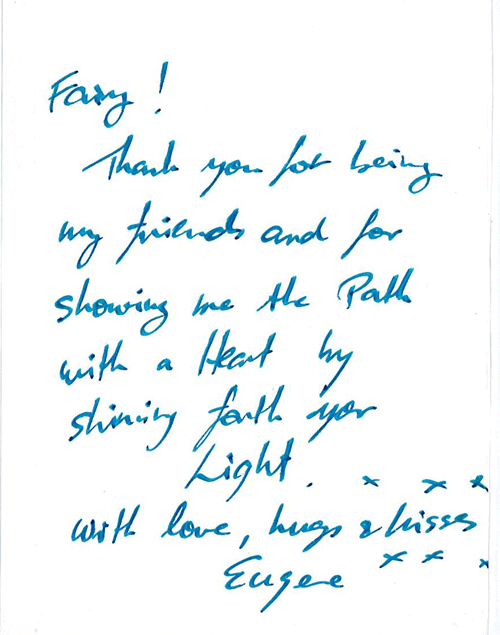 Fairy!
Thank you for being
my friends and for
showing me the Path
with a Heart by
shining forth yor
Light.
x x x
with love, hugs & kisses
x x x
Eugene